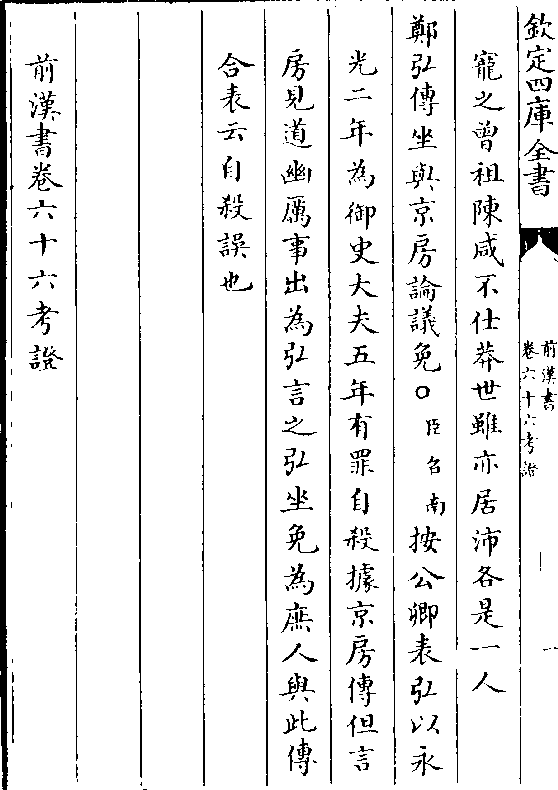 欽定四庫全書
前漢書
卷六十六考證
一
寵之曾祖陳咸不仕莽世雖亦居沛各是一人
鄭弘傳坐與京房論議免○臣召南按公卿表弘以永
光二年為御史大夫五年有罪自殺據京房傳但言
房見道幽厲事出為弘言之弘坐免為庶人與此傳
合表云自殺誤也
前漢書卷六十六考證